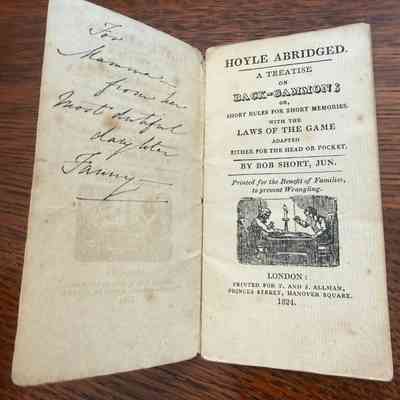 For
Mamma
from her
most dutiful
daughter
Fanny
HOYLE ABRIDGED.
A TREATISE
ON
BACK-GAMMON;
OR,
SHORT RULES FOR SHORT MEMORIES.
WITH THE
LAWS OF THE GAME
ADAPTED
EITHER FOR THE HEAD OR POCKET.
BY BOB SHORT, JUN.
Printed for the Benefit of Families,
to prevent Wrangling.
LONDON:
PRINTED FOR T. AND J. ALLMAN,
PRINCES STREET, HANOVER SQUARE.
1824.